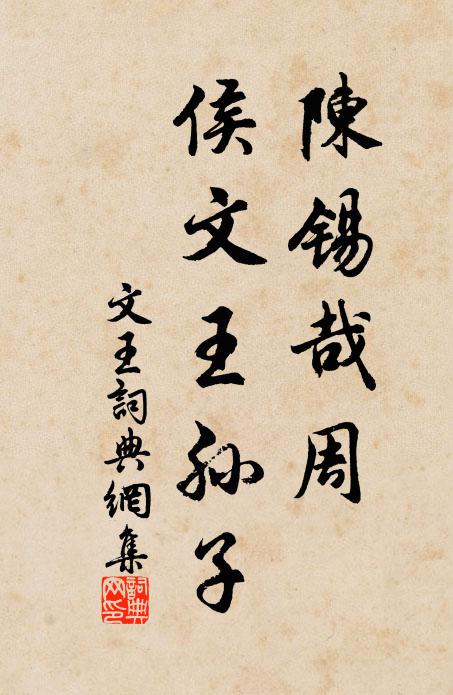 陳錫哉周
侯文王孫子
文王詞典網集
詞典
网印